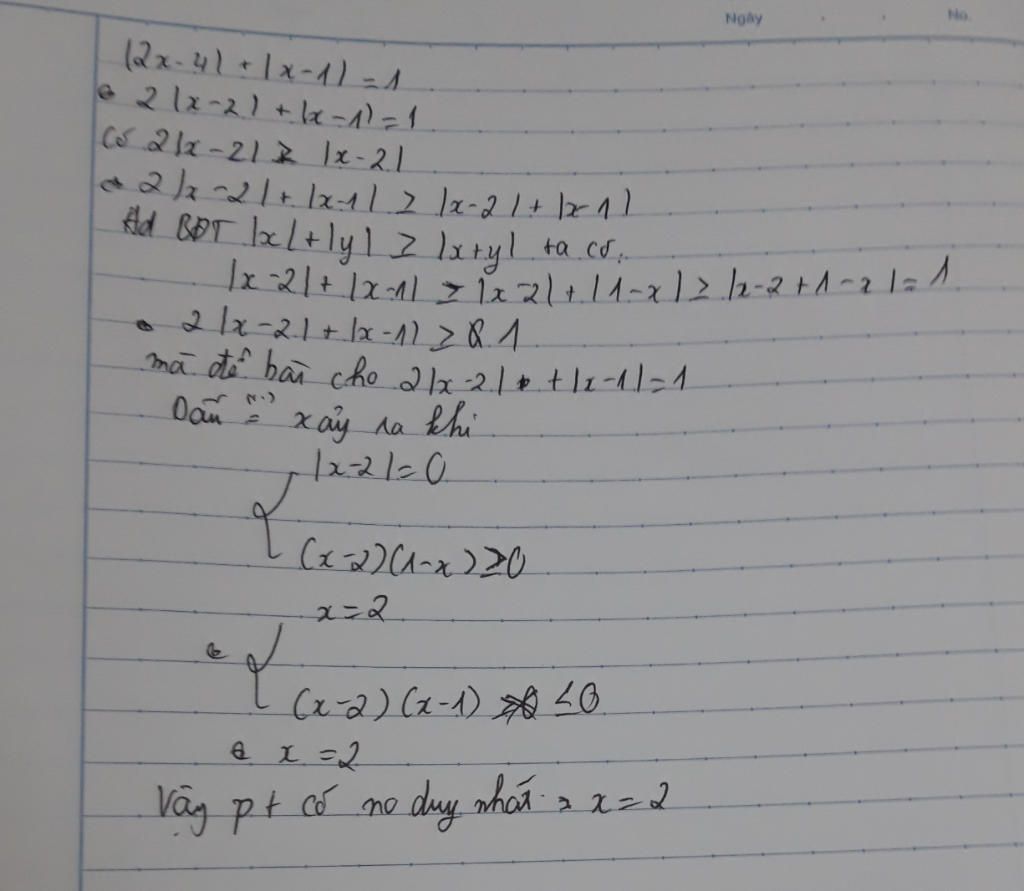 Ngày No.
|2x-4| + |x-1| = 1
⇔ 2|x-2| + |x-1| = 1
Có 2|x-2| ≥ |x-2|
⇔ 2|x-2| + |x-1| ≥ |x-2| + |x-1|
Ad BĐT |x| + |y| ≥ |x+y| ta có:
|x-2| + |x-1| ≥ |x-2| + |1-x| ≥ |x-2+1-x| = 1
⇔ 2|x-2| + |x-1| ≥ 1
mà đề bài cho 2|x-2| + |x-1| = 1
Dấu "=" xảy ra khi
|x-2| = 0
(x-2)(1-x) ≥ 0
x = 2
⇔
(x-2)(x-1) ≤ 0
⇔ x = 2
Vậy pt có no duy nhất x = 2